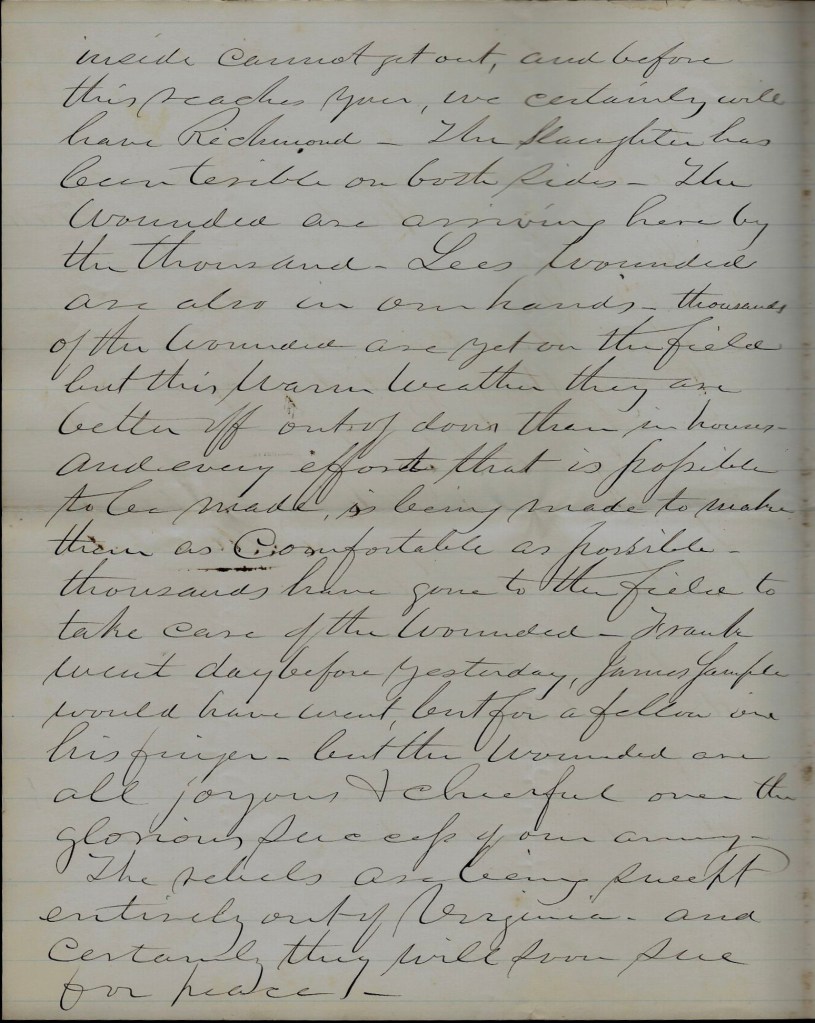 inside cannot get out, and before
this reaches you, we certainly will
have Richmond – The Slaughter has
been terible on both sides – The
Wounded are arriving here by
the thousand – Lees Wounded
are also in our hands – thousands
of the Wounded are yet on the field
but this Warm Weather they are
better off out of doors than in houses –
and every effort that is possible
to be made, is being made to make
them as Comfortable as possible –
thousands have gone to the field to
take care of the Wounded – Frank
went day before yesterday, James Sample
would have went, but for a fellon on
his finger – but the Wounded are
all joyous & cheerful over the
glorious success of our army –
The rebels are being sweept
entirely out of Virginia – and
certainly they will soon sue
for peace –